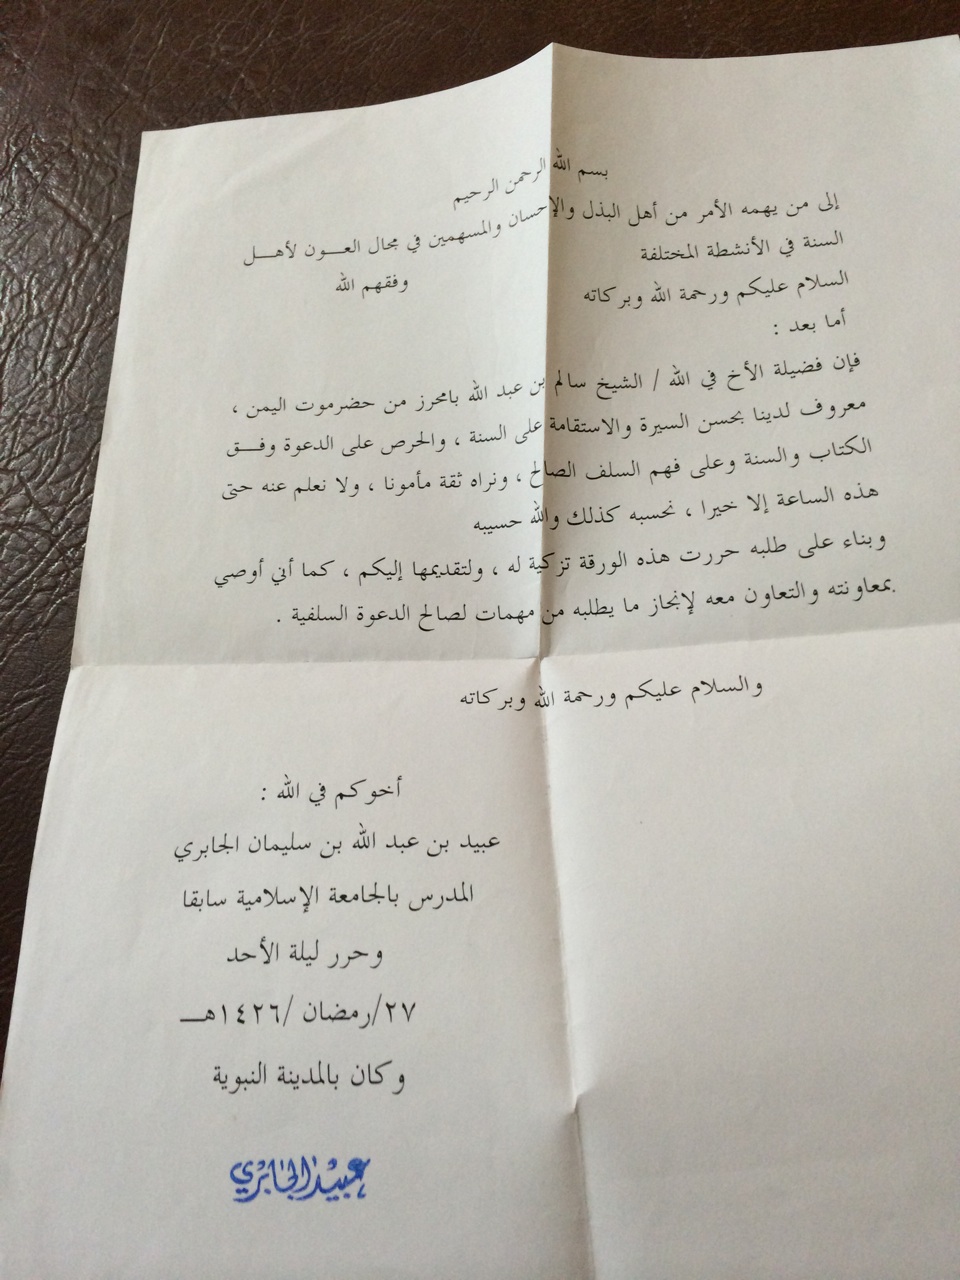 بسم الله الرحمن الرحيم
إلى من يهمه الأمر من أهل البذل والإحسان والمسهمين في مجال العـــون لأهـــل
السنة في الأنشطة المختلفة
وفقهم الله
السلام عليكم ورحمة الله وبركاته
أما بعد :
فإن فضيلة الأخ في الله / الشيخ سالم بن عبد الله بامحرز من حضرموت اليمن ،
معروف لدينا بحسن السيرة والاستقامة على السنة ، والحرص على الدعوة وفـــق
الكتاب والسنة وعلى فهم السلف الصالح ، ونراه ثقة مأمونا ، ولا نعلم عنه حتى
هذه الساعة إلا خيرا ، نحسبه كذلك والله حسيبه
وبناء على طلبه حررت هذه الورقة تزكية له ، ولتقديمها إليكم ، كما أني أوصي
بمعاونته والتعاون معه لإنجاز ما يطلبه من مهمات لصالح الدعوة السلفية .
والسلام عليكم ورحمة الله وبركاته
أخوكم في الله :
عبيد بن عبد الله بن سليمان الجابري
المدرس بالجامعة الإسلامية سابقا
وحرر ليلة الأحد
٢٧/رمضان /١٤٢٦هـــ
وكان بالمدينة النبوية
عبيد الجابري